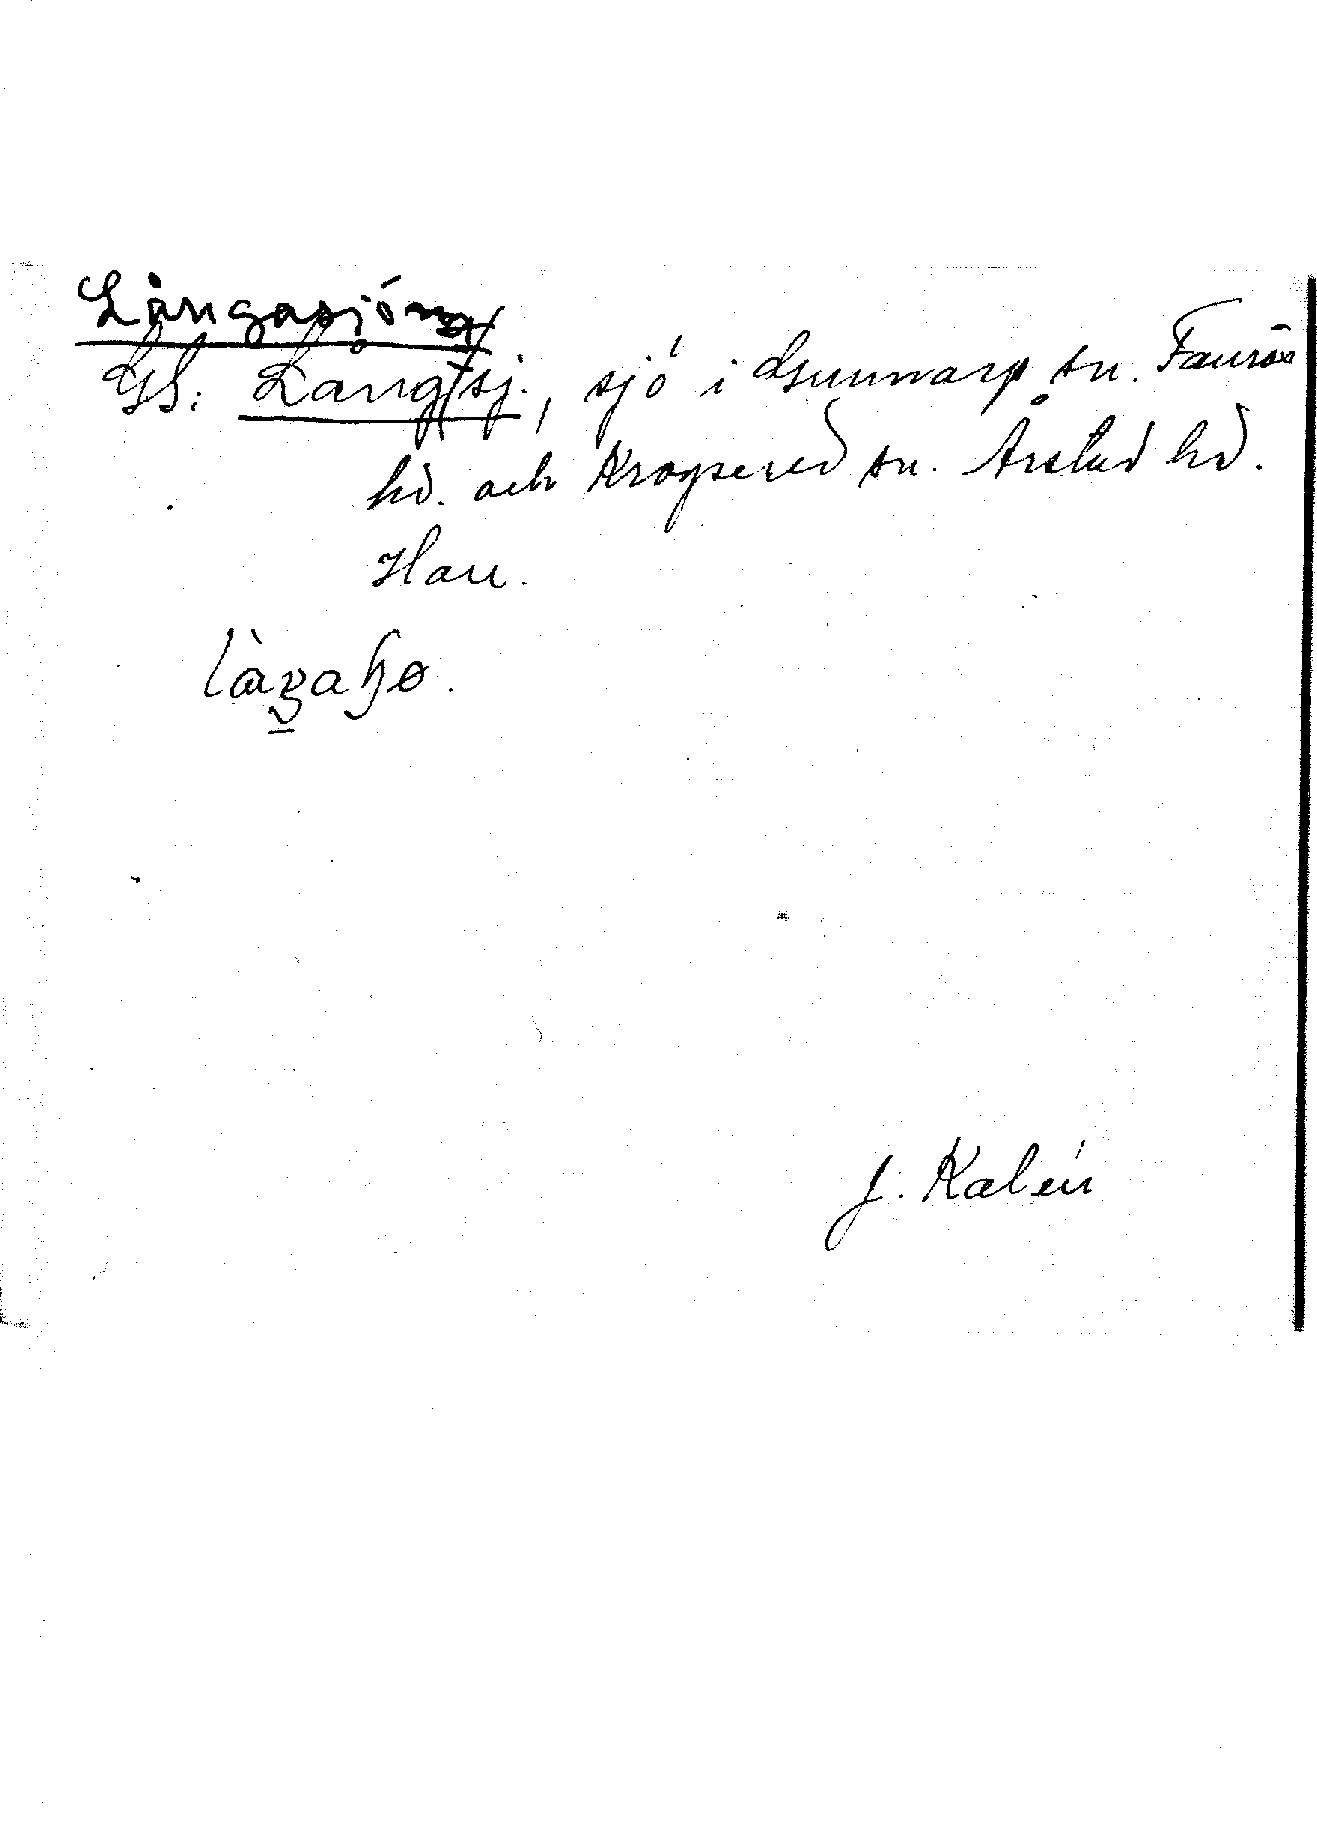 Långasjön
GS: Lång sj., sjö i Gunnarp sn. Faurås
hd. och Krogsered sn. Årstad hd.
Hall.
J. Kalén